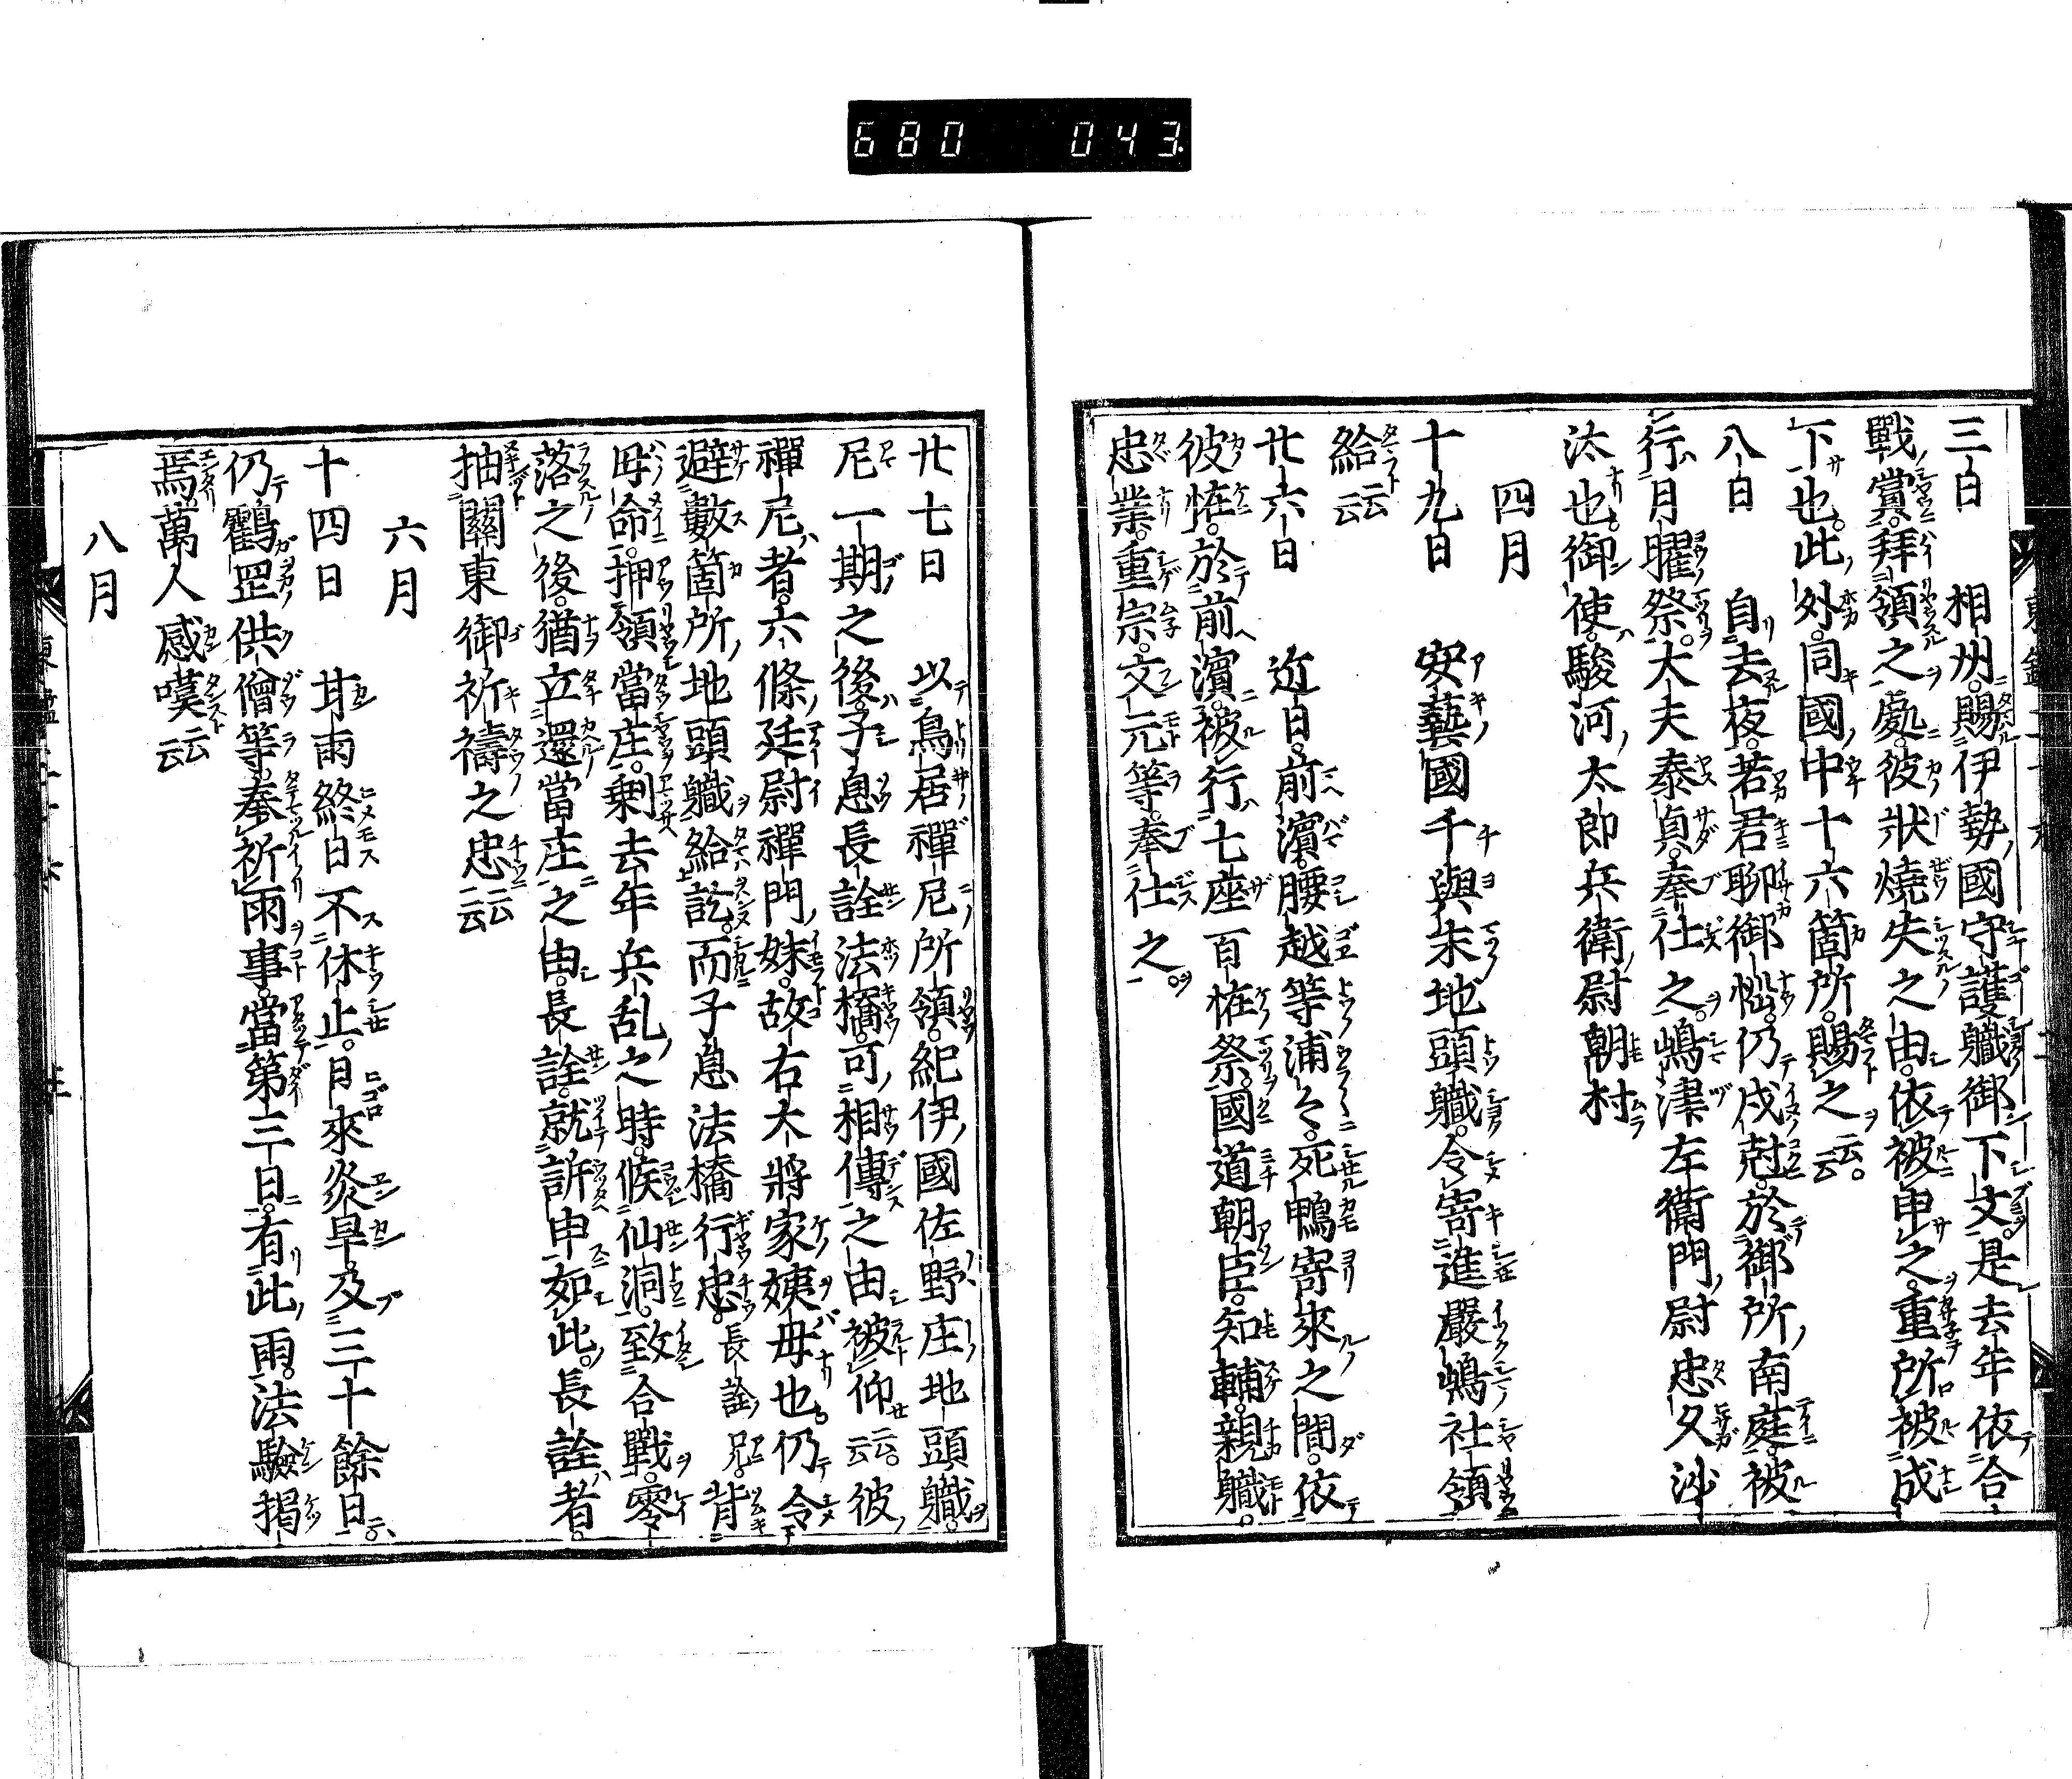 680 043
三日 相州。賜伊勢國守護職御下文。是去年依合
戰賞。拜領之處。彼状燒失之由。依被申之。重所被成
下也。此外。同國中十六箇所。賜之云云。
八日 自去夜。若君聊御惱。仍戌尅。於御所南庭。被
行月曜祭。大夫泰貞。奉仕之。嶋津左衛門尉忠久沙
汰也。御使。駿河太郎兵衛尉朝村
四月
十九日 安藝國千與末地頭職。令寄進嚴嶋社領
給云云
廿六日 近日。前濵。腰越等浦々。死鴨寄來之間。依
彼恠。於前濵。被行七座百恠祭。國道朝臣。知輔。親職。
忠業。重宗。文元等。奉仕之。
廿七日 以鳥居禪尼所領。紀伊國佐野庄地頭職。
尼一期之後。子息長詮法橋。可相傳之由被仰云云。彼
禪尼者。六條廷尉禪門妹。故右大將家姨母也。仍令
避數箇所地頭職給訖。而子息法橋行忠。長詮兄。背
母命。押領當庄。剰去年兵乱之時。候仙洞。致合戰。零
落之後。猶立還當庄之由。長詮。就訴申如此。長詮者。
抽關東御祈禱之忠云云
六月
十四日 甘雨終日不休止。月來炎旱及三十餘日。
仍鸖岡供僧等奉祈雨事。當第三日。有此雨。法驗掲
焉。萬人感嘆云云
八月